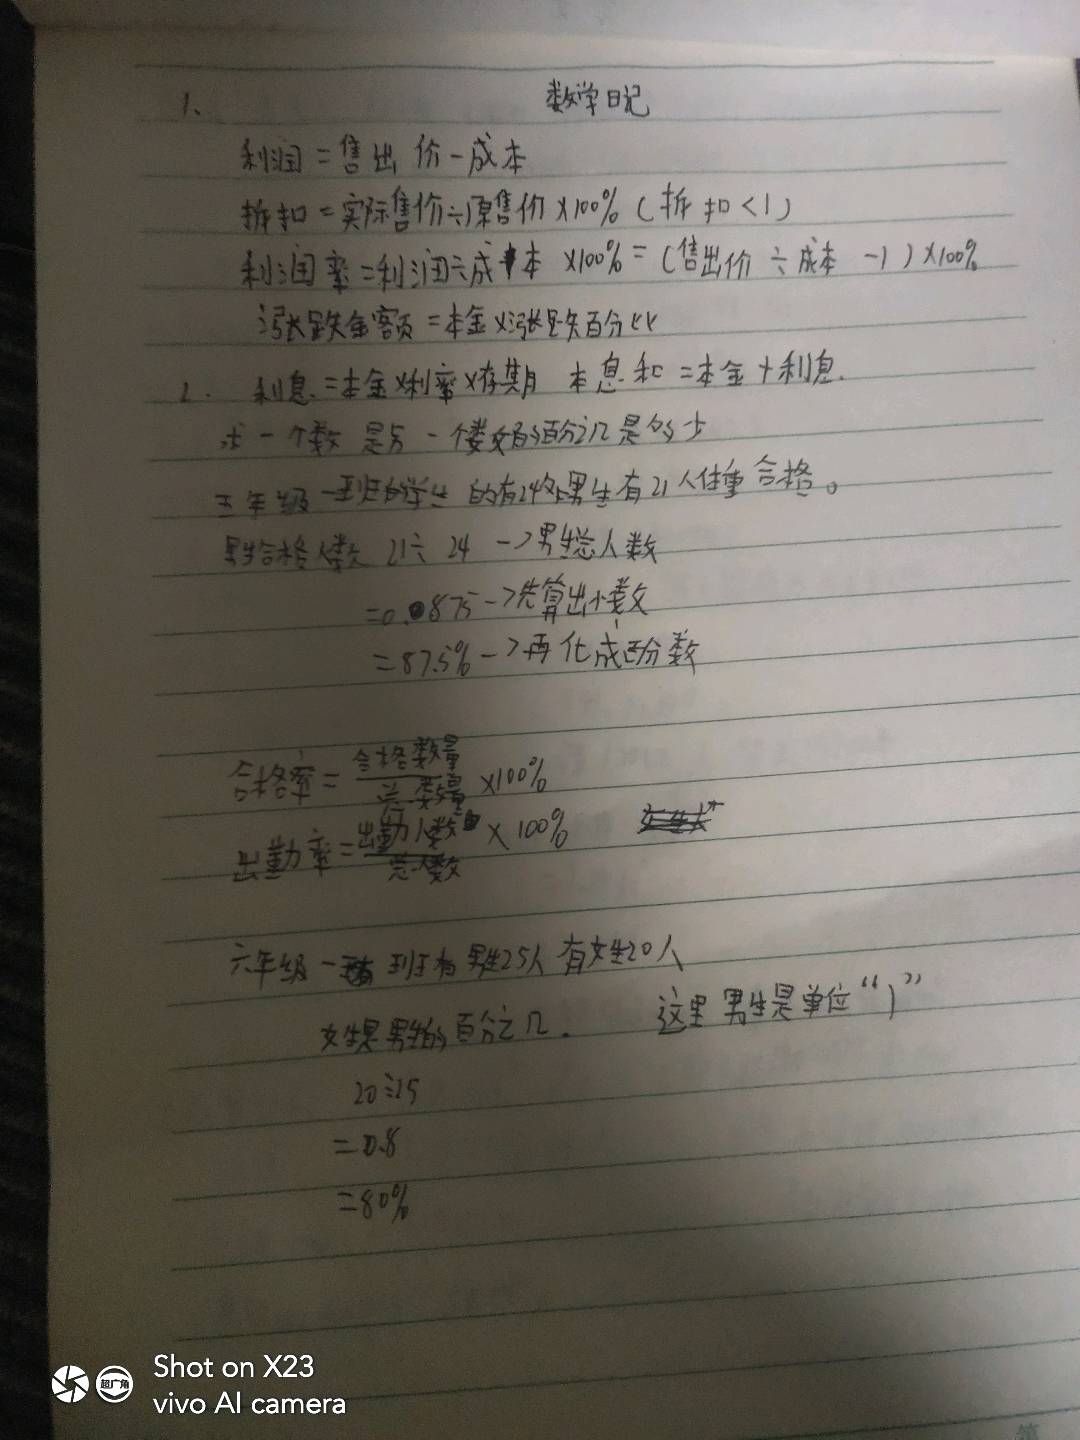 1、 数学日记
利润=售出价-成本
折扣=实际售价÷原售价×100%(折扣<1)
利润率=利润÷成本×100%=(售出价÷成本-1)×100%
涨跌金额=本金×涨跌百分比
2. 利息=本金×利率×存期 本息和=本金+利息.
求一个数是另一个数的百分之几是多少
五年级一班的学生的有24名男生有21人体重合格。
男生合格人数 21÷24->男生总人数
=0.875->先算出小数
=87.5%->再化成百分数
合格率=合格数量/总数量×100%
出勤率=出勤人数/总人数×100%
六年级一班有男生25人有女生20人
女生是男生的百分之几. 这里男生是单位“1”
20÷25
=0.8
=80%
超广角
Shot on X23
vivo AI camera